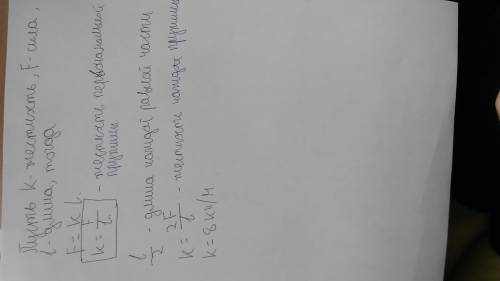 Пусть k-жесткость, F-сила,
l-длина, тогда
F = k l.
k = F/l - жесткость первоначальной
пружины
l/2 - длина каждой равной части
k = 2F/l - жесткость каждой пружины
k = 8 кН/м.